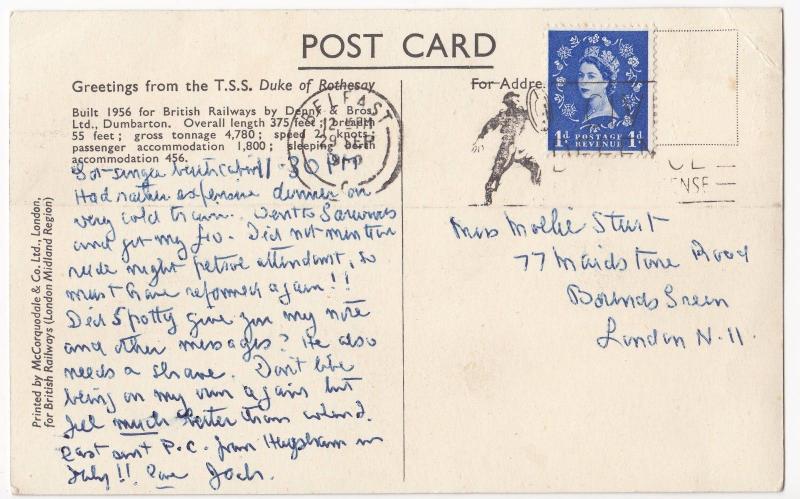 POST CARD
Greetings from the T.S.S. Duke of Rothesay
Built 1956 for British Railways by Denny & Bros.
Ltd., Dumbarton. Overall length 375 feet; breadth
55 feet; gross tonnage 4,780; speed 21 knots;
passenger accommodation 1,800; sleeping berth
accommodation 456.
For Addre
BELFAST
SEP
POSTAGE
1d REVENUE 1d
NSE
Printed by McCorquodale & Co. Ltd., London,
for British Railways (London Midland Region)
single berth cabin 11.30 PM
Had rather expensive dinner on
very cold train. Went to
and get my fiv. Did not mention
rude night attendant, so
must have reformed again!!
Did Spotty give you my note
and other messages? He also
needs a shave. Don't like
being on my own again but
feel much better than
last sent P.C. from in
July!! Love Jock.
Miss Mollie Sturt
77 Maidstone Road
Bounds Green
London N.11